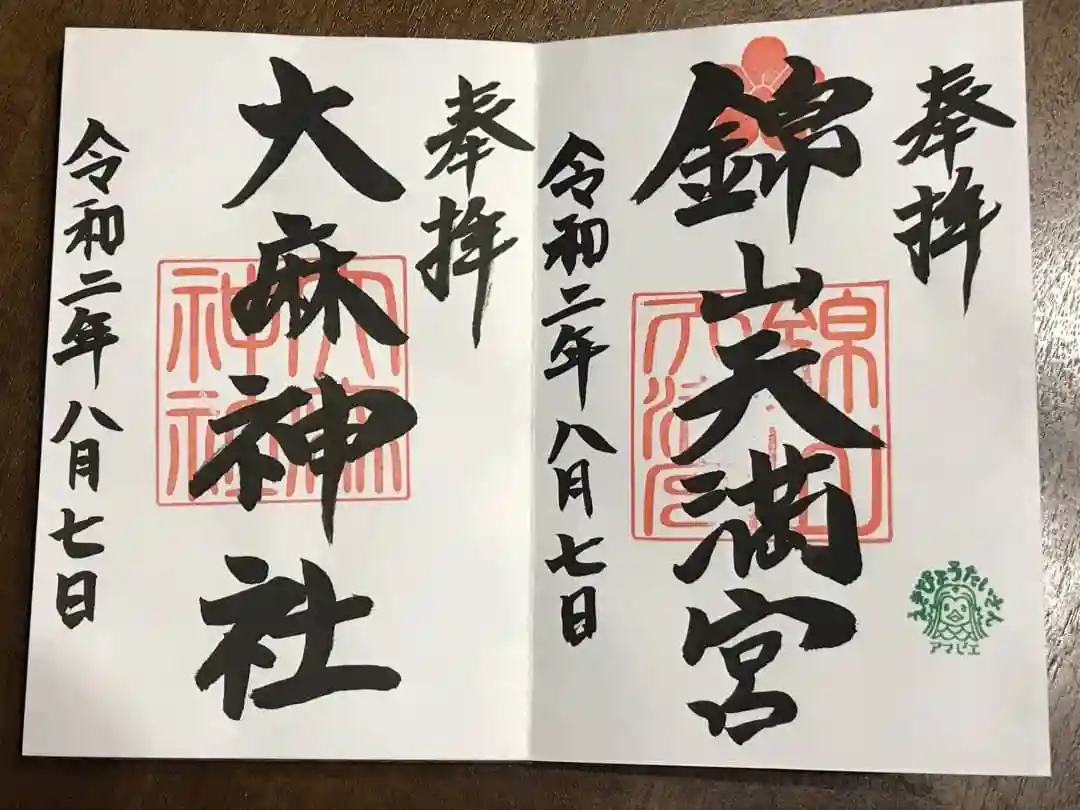 奉拝
錦山天満宮
令和二年八月七日
えきびょうたいさん
アマビエ
奉拝
大麻神社
令和二年八月七日
大麻
神社